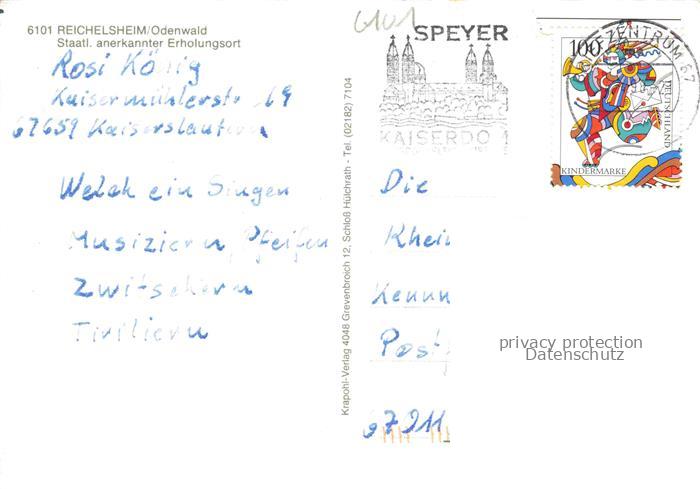 6101 REICHELSHEIM/Odenwald
Staatl. anerkannter Erholungsort
6101
SPEYER
KAISERDOM
BRIEFZENTRUM 67
100
DEUTSCHLAND
KINDERMARKE
Rosi König
Kaisermühlerstr 69
67659 Kaiserslautern
Welch ein Singen
Musiziern, Pfeifen
Zwitschern
Tirilieru
Krapohl-Verlag 4048 Grevenbroich 12, Schloß Hülchrath - Tel. (02182) 7104
Die
Rhei
Kennw
Post
67911
privacy protection
Datenschutz